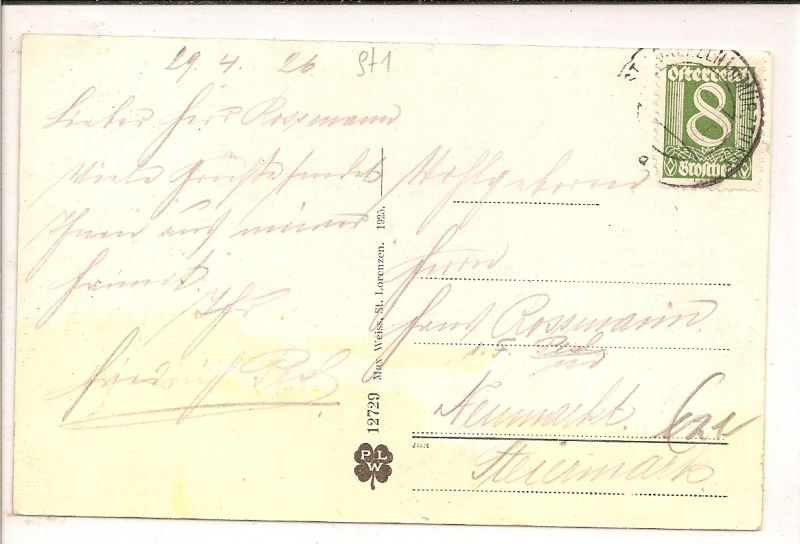 29. 4. 26
Lieber Herr Rossmann
Viele Grüße sendet
Ihnen aus meiner
Heimat.
Ihr
Friedrich
Österreich
8
Groschen
Wohlgeboren
Herrn
Hans Rossmann.
Neumarkt.
Steiermark
12729 Max Weiss, St. Lorenzen. 1925.
P L W